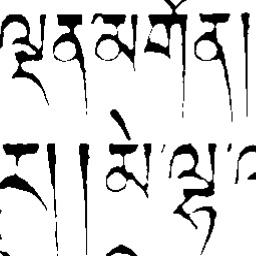 ལྡན་མགོན།
། །མེ་ལྷ་